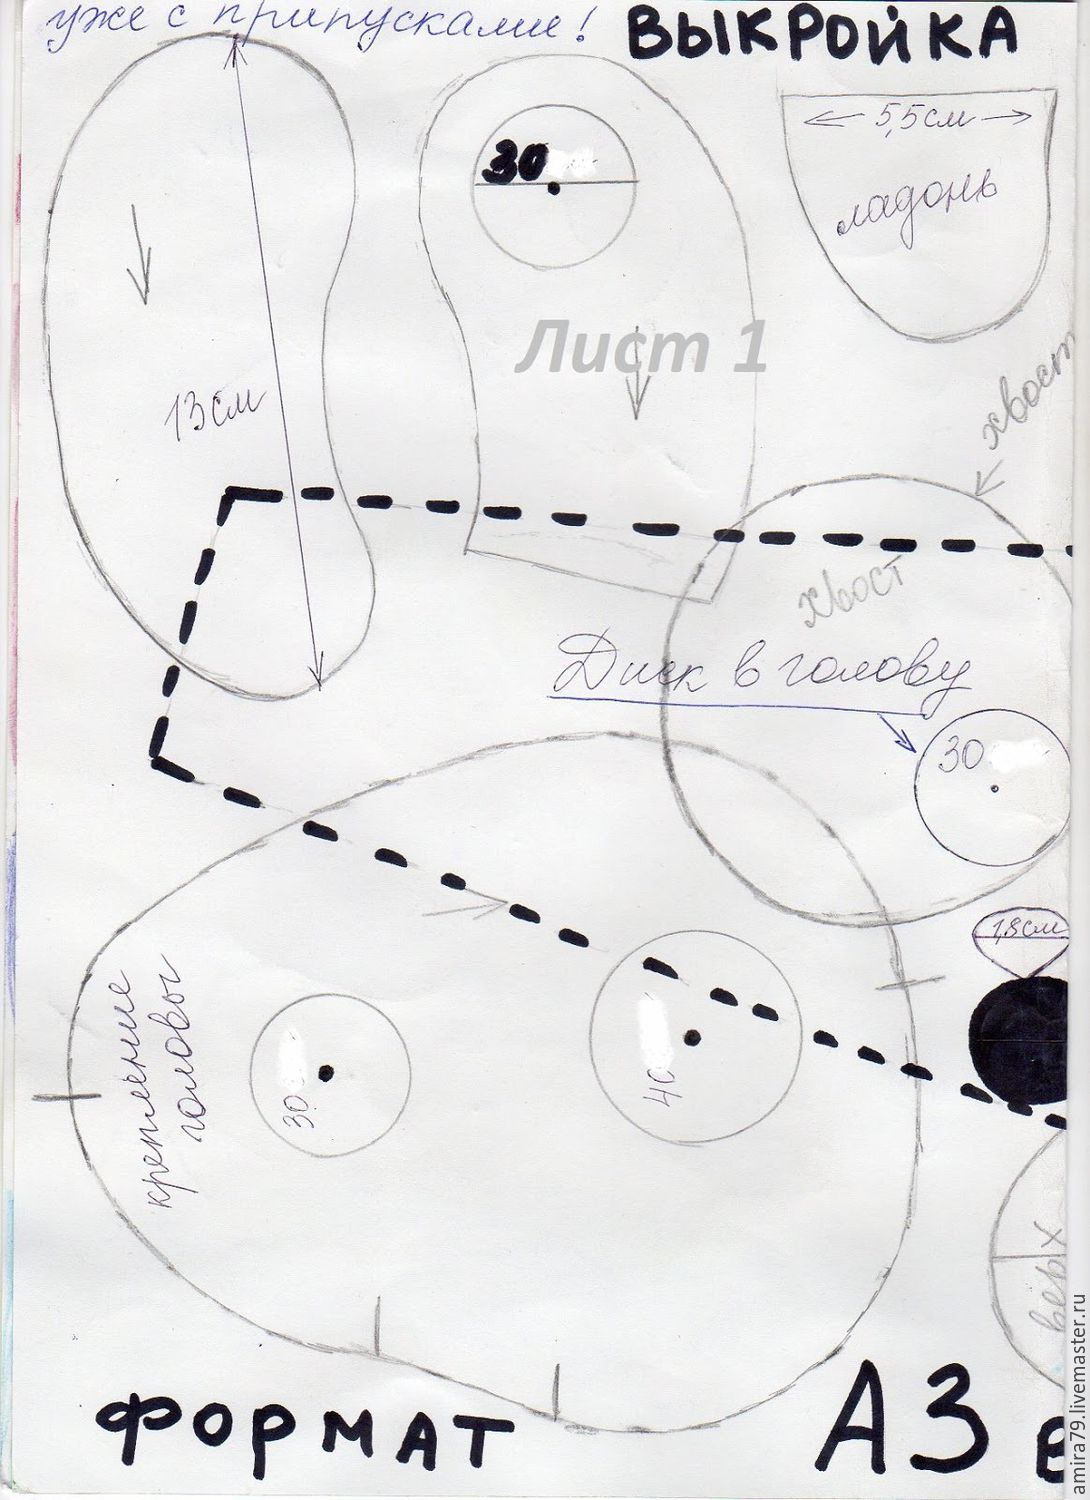 уже с припусками!
ВЫКРОЙКА
30
5,5см
ладонь
Лист 1
13см
хвост
хвост
Диск в голову
30
1,8см
крепление
головы
30
40
верх
ФОРМАТ
А3
amira79.livemaster.ru